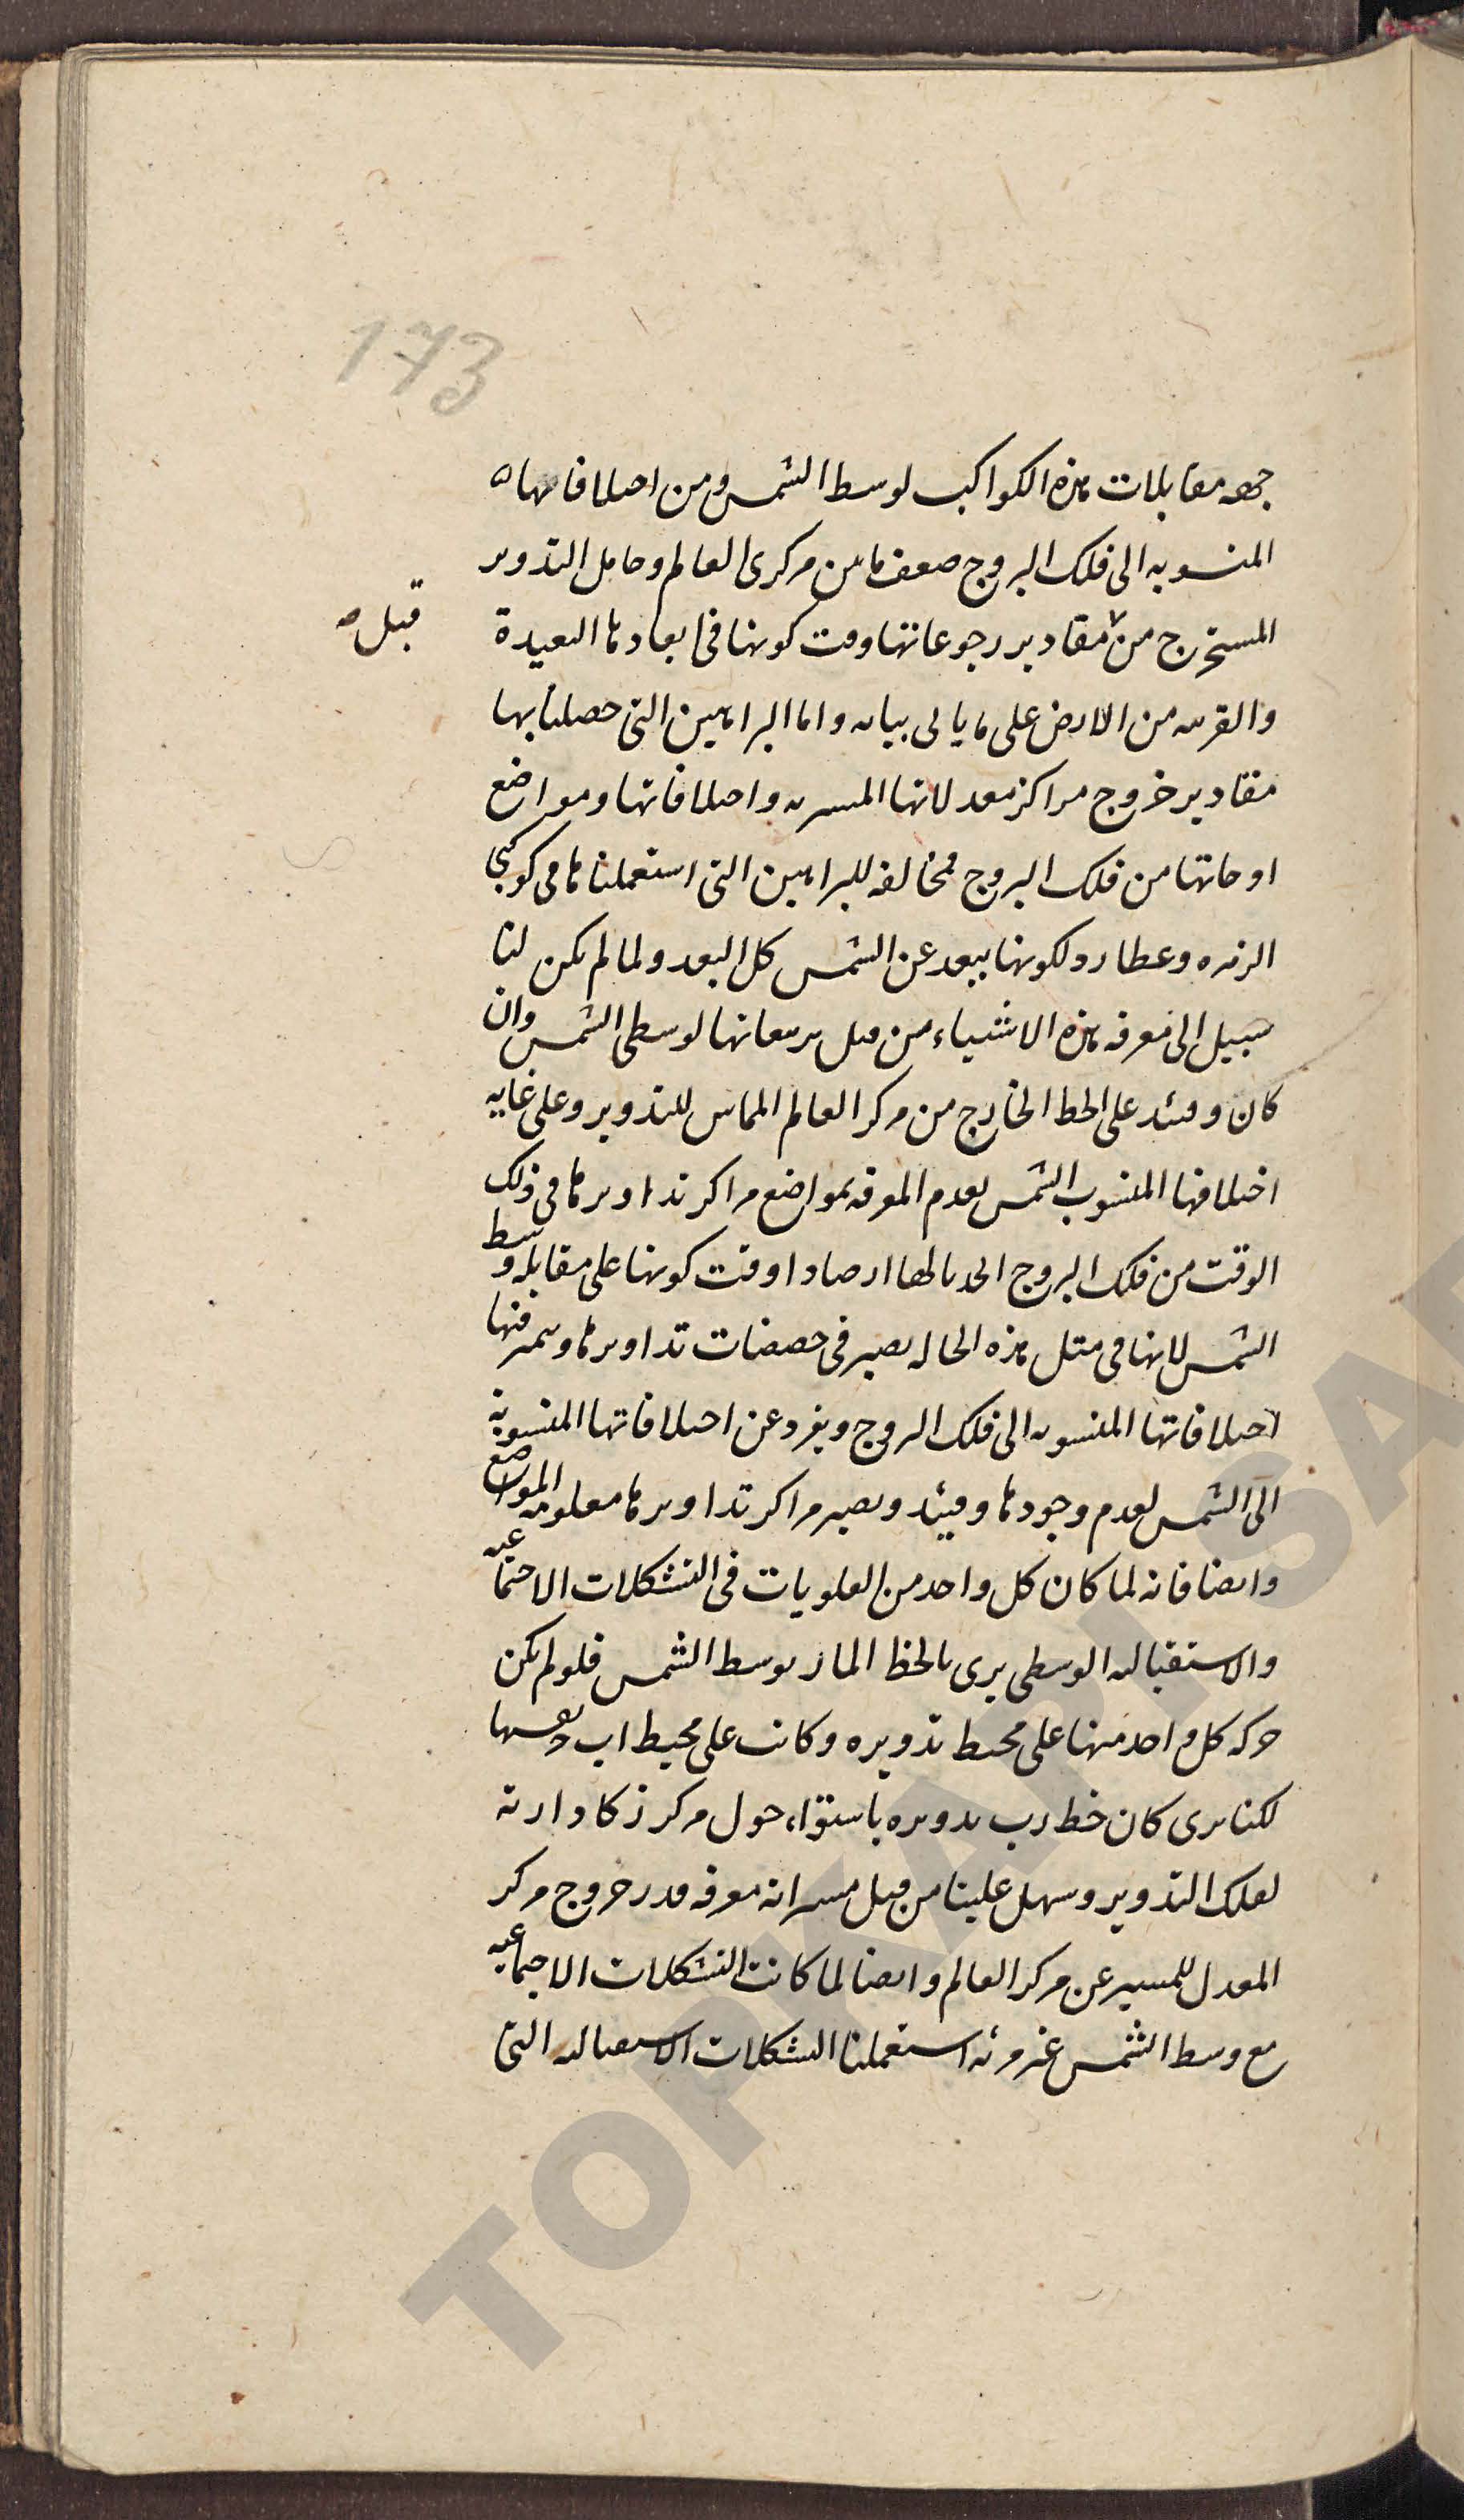 173
جهه مقابلات هذه الكواكب لوسط الشمس ومن اختلافاتها
المنسوبه الى فلك البروج ضعف ما بين مركزى العالم وحامل التدوير
المستخرج من مقادير رجوعاتها وقت كونها فى ابعادها البعيدة
قبل صه
والقريبه من الارض على ما ياتى بيانه واما البراهين التى حصلنا بها
مقادير خروج مراكز معدلاتها المسيريه واختلافاتها ومواضع
اوجاتها من فلك البروج فمخالفه للبراهين التى استعملناها فى كوكبى
الزهره وعطارد لكونها يبعد عن الشمس كل البعد ولما لم يكن لنا
سبيل الى معرفه هذه الاشياء من قبل تربيعاتها لوسطى الشمس وان
كان وقتئذ على الخط الخارج من مركز العالم المماس للتدوير وعلى غايه
اختلافها المنسوب الشمس لعدم المعرفه بمواضع مراكز تداويرها فى ذلك
الوقت من فلك البروج ارصادا وقت كونها على مقابله وسط
الشمس لانها فى مثل هذه الحاله يصير فى حضيضات تداويرها
اختلافاتها المنسوبه الى فلك البروج ويفرد عن اختلافاتها المنسوبة
الى الشمس لعدم وجودها وقتئذ ويصير مراكز تداويرها معلومه المواضع
وايضا فانه لما كان كل واحد من العلويات فى التشكلات الاجتماعيه
والاستقباليه الوسطى يرى بالخط المار بوسط الشمس فلو لم يكن
حركه كل واحد منها على محيط تدويره وكانت على محيط اب بعينها
لكنا نرى كان خط رب تدويره باستواء حول مركز ز كادارته
لفلك التدوير وسهل علينا من قبل مسيراته معرفه قدر خروج مركز
المعدل للمسير عن مركز العالم وايضا لما كانت التشكلات الاجتماعيه
مع وسط الشمس غير مرئيه استعملنا التشكلات الاستقباليه التى